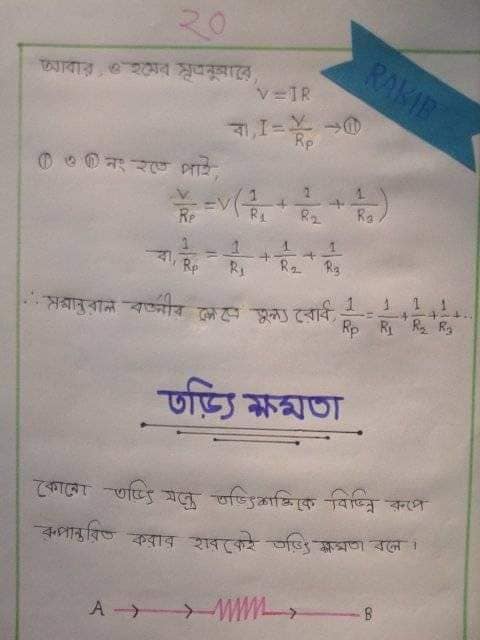 20
RAKIB
আবার, ও'হমের সূত্রানুসারে,
V = IR
বা, I = V/Rp → ⑪
① ও ⑪ নং হতে পাই,
V/Rp = V(1/R1 + 1/R2 + 1/R3)
বা, 1/Rp = 1/R1 + 1/R2 + 1/R3
∴ সমান্তরাল বর্তনীর ক্ষেত্রে তুল্য রোধ, 1/Rp = 1/R1 + 1/R2 + 1/R3 + ...
তড়িৎ ক্ষমতা
কোনো তড়িৎ যন্ত্রে তড়িৎশক্তিকে বিভিন্ন রূপে
রূপান্তরিত করার হারকেই তড়িৎ ক্ষমতা বলে।
A B